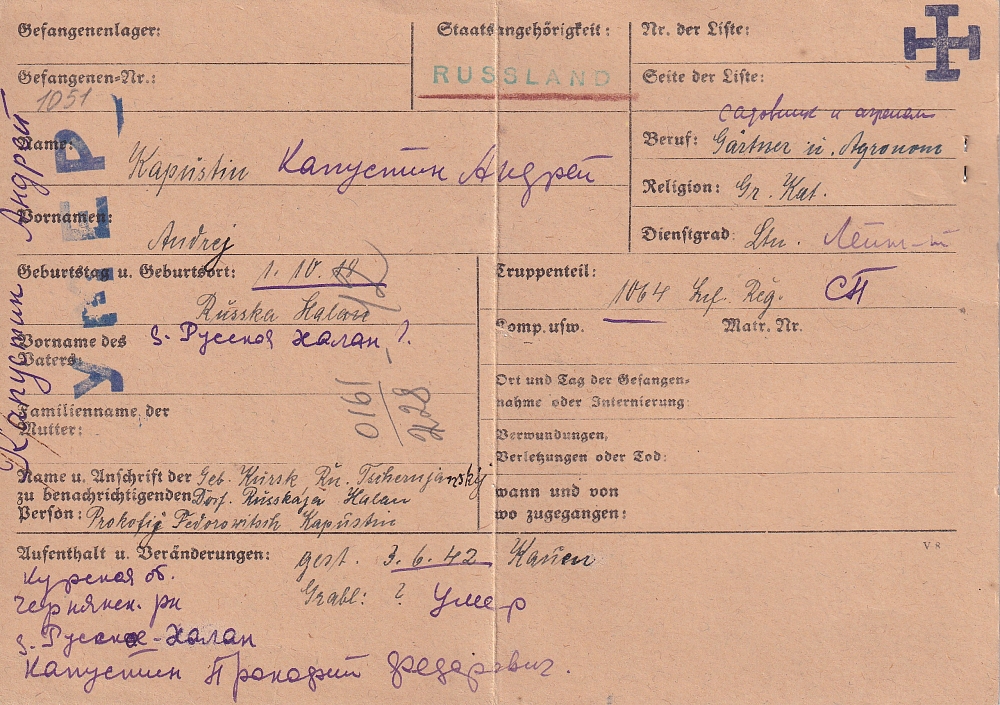 Gefangenenlager:
Staatsangehörigkeit:
RUSSLAND
Nr. der Liste:
Gefangenen-Nr.:
1051
Seite der Liste:
садовник и агроном
Beruf: Gärtner u. Agronom
Name: Kapustin Капустин Андрей
Religion: Gr. Kat.
Vornamen: Andrej
Dienstgrad: Ltn. Лейт-т
Geburtstag u. Geburtsort: 1. 10. 18
Russka Halan
д. Русской Халан
Truppenteil:
1064 Inf. Reg. СП
Komp. usw. Matr. Nr.
Vorname des
Vaters:
Ort und Tag der Gefangen-
nahme oder Internierung:
Familienname der
Mutter:
0161
228
Verwundungen,
Verletzungen oder Tod:
Name u. Anschrift der Geb. Kursk Rn. Tschernjanskij
zu benachrichtigenden Dorf. Russkaja Halan
Person: Prokofij Fedorowitsch Kapustin
wann und von
wo zugegangen:
Aufenthalt u. Veränderungen: gest. 3.6.42 Kauen
V 8
Grabl: ? Умер
Курская об.
Чернянск. рн
д. Русское-Халан
Капустин Прокофий Федарович.
Капустин Андрей
УМЕР